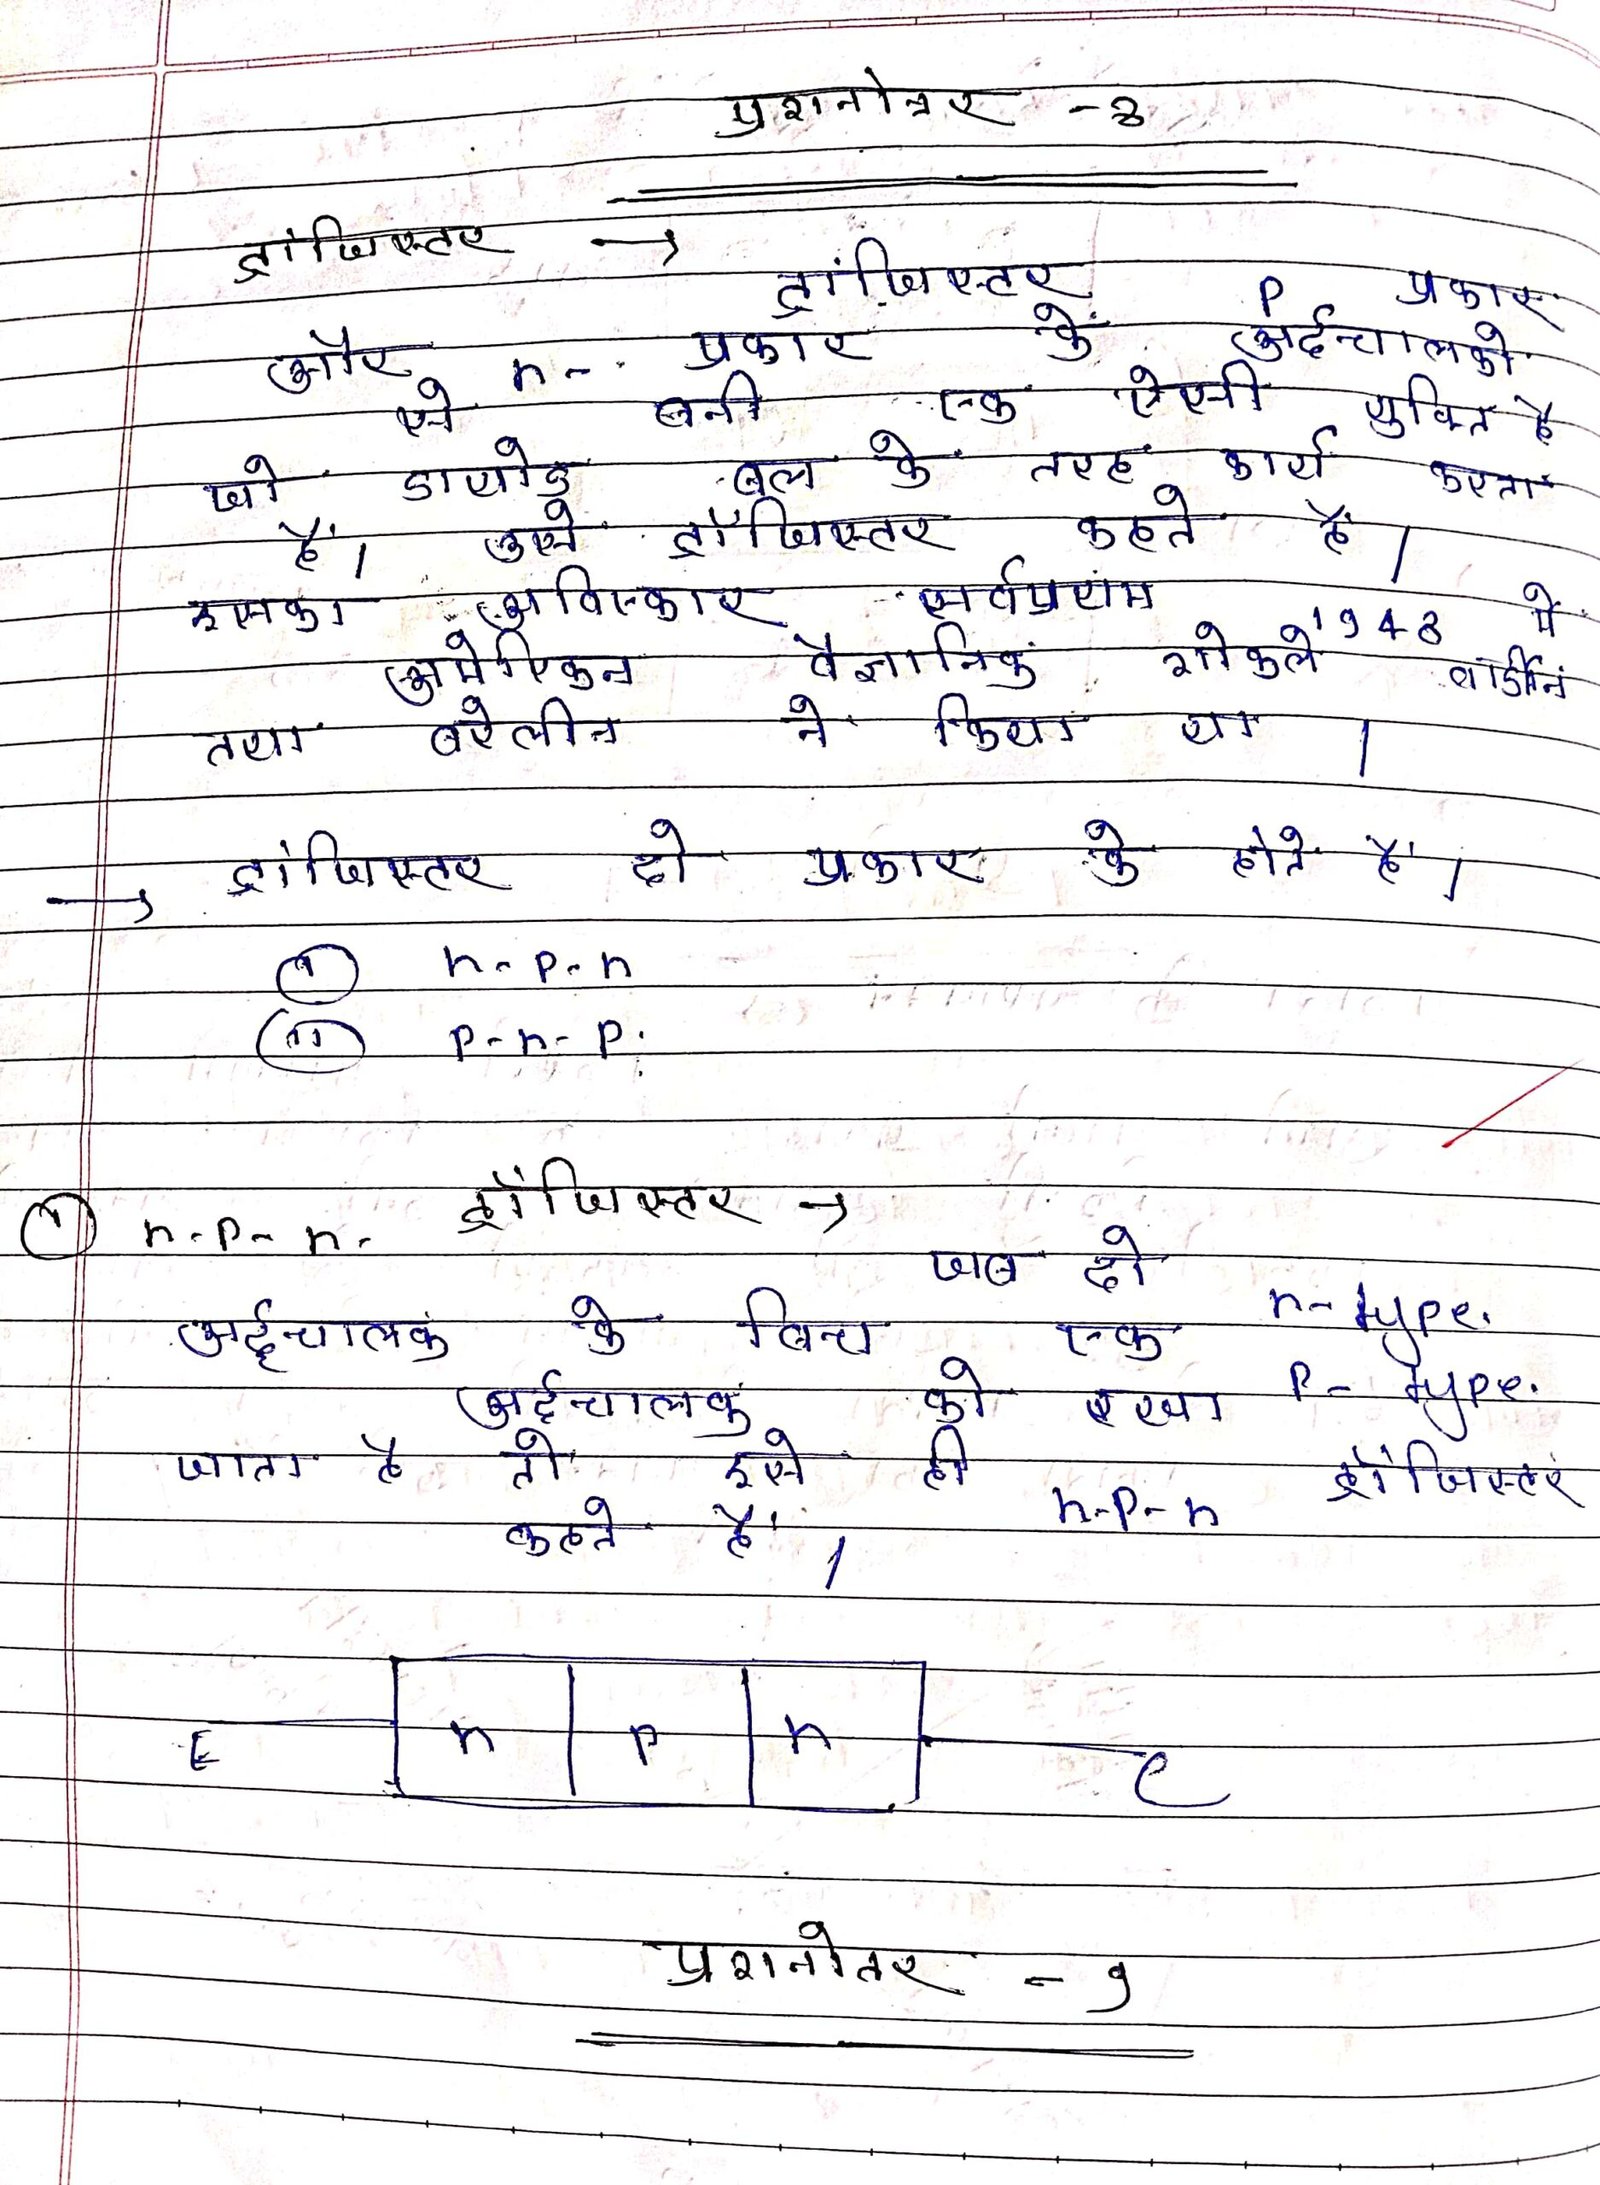 प्रशनोत्तर - 8
ट्रांजिस्टर →
ट्रांजिस्टर P प्रकार
और n- प्रकार के अर्द्धचालको
से बनी एक ऐसी युक्ति है
जो डायोड बल्ब के तरह कार्य करता
हैं। उसे ट्राँजिस्टर कहते हैं।
इसका अविस्कार सर्वप्रथंम 1948 मे
अमेरिकन वैज्ञानिक शोकले वार्डीन
तथा बरेलीन ने किया था।
→ ट्रांजिस्टर दो प्रकार के होते हैं।
(i) n-p-n
(ii) p-n-p.
(i) n-p-n. ट्राँजिस्टर →
जब दो n-type.
अर्द्धचालक के बिच एक P-type.
अर्द्धचालक को रखा
जाता है तो इसे ही n-p-n ट्राँजिस्टर
कहते हैं।
E n p n C
प्रशनोतर - 9